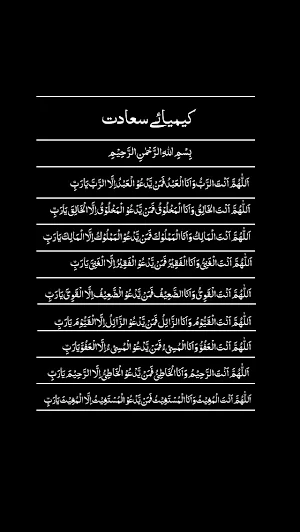 کیمیائے سعادت
بِسْمِ اللهِ الرَّحْمٰنِ الرَّحِيْمِ
اَللّٰهُمَّ اَنْتَ الرَّبُّ وَاَنَا الْعَبْدُ فَمَنْ يَّدْعُوْ الْعَبْدُ اِلَّا الرَّبَّ يَارَبِّ
اَللّٰهُمَّ اَنْتَ الْخَالِقُ وَاَنَا الْمَخْلُوْقُ فَمَنْ يَّدْعُوْ الْمَخْلُوْقُ اِلَّا الْخَالِقَ يَارَبِّ
اَللّٰهُمَّ اَنْتَ الْمَالِكُ وَاَنَا الْمَمْلُوْكُ فَمَنْ يَّدْعُوْ الْمَمْلُوْكُ اِلَّا الْمَالِكَ يَارَبِّ
اَللّٰهُمَّ اَنْتَ الْغَنِيُّ وَاَنَا الْفَقِيْرُ فَمَنْ يَّدْعُوْ الْفَقِيْرُ اِلَّا الْغَنِيَّ يَارَبِّ
اَللّٰهُمَّ اَنْتَ الْقَوِيُّ وَاَنَا الضَّعِيْفُ فَمَنْ يَّدْعُوْ الضَّعِيْفُ اِلَّا الْقَوِيَّ يَارَبِّ
اَللّٰهُمَّ اَنْتَ الْقَيُّوْمُ وَاَنَا الزَّائِلُ فَمَنْ يَّدْعُوْ الزَّائِلُ اِلَّا الْقَيُّوْمَ يَارَبِّ
اَللّٰهُمَّ اَنْتَ الْعَفُوُّ وَاَنَا الْمُسِيْءُ فَمَنْ يَّدْعُوْ الْمُسِيْءُ اِلَّا الْعَفُوَّ يَارَبِّ
اَللّٰهُمَّ اَنْتَ الرَّحِيْمُ وَاَنَا الْخَاطِئُ فَمَنْ يَّدْعُوْ الْخَاطِئُ اِلَّا الرَّحِيْمَ يَارَبِّ
اَللّٰهُمَّ اَنْتَ الْمُغِيْثُ وَاَنَا الْمُسْتَغِيْثُ فَمَنْ يَّدْعُوْ الْمُسْتَغِيْثُ اِلَّا الْمُغِيْثَ يَارَبِّ